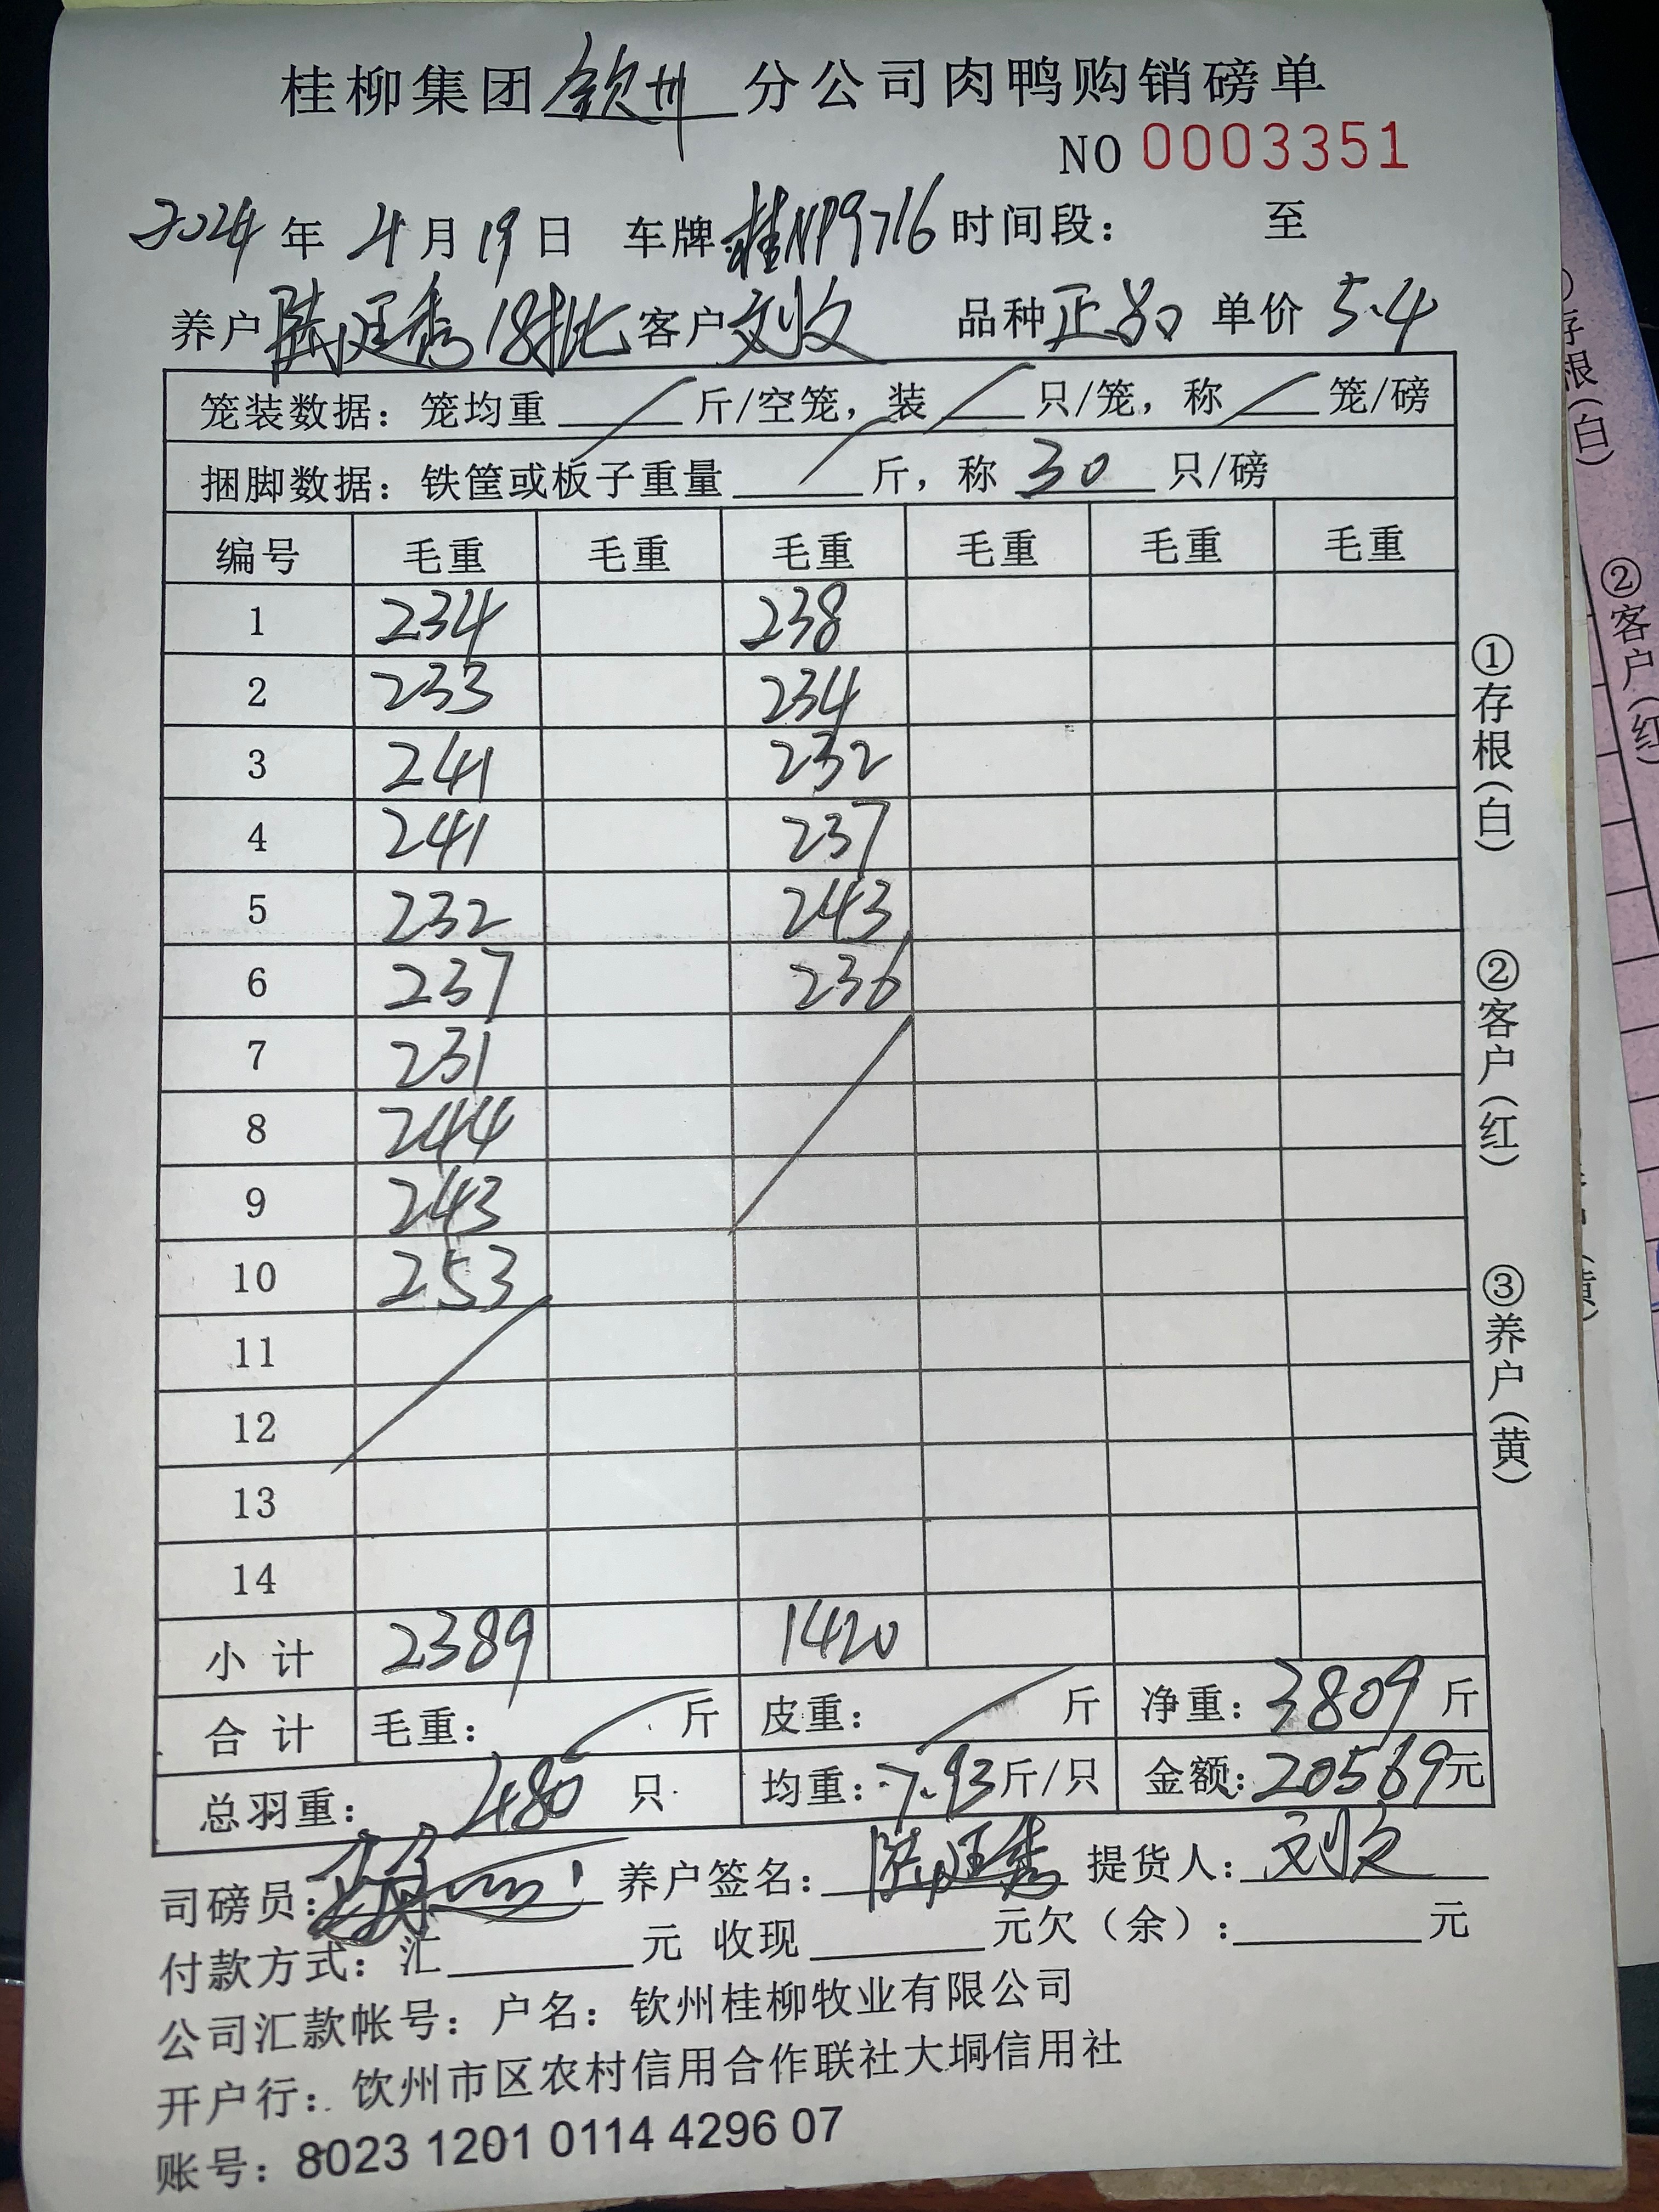 桂柳集团钦州分公司肉鸭购销磅单
NO 0003351
2024年4月19日 车牌:桂NP9716 时间段: 至
养户陆廷秀18批 客户刘文 品种正品 单价5.4
笼装数据:笼均重 斤/空笼,装 只/笼,称 笼/磅
捆脚数据:铁筐或板子重量 斤,称 30 只/磅
编号 毛重 毛重 毛重 毛重 毛重 毛重
1 234 238
2 233 234
3 241 232
4 241 237
5 232 243
6 237 236
7 231
8 244
9 243
10 253
11
12
13
14
小计 2389 1420
合计 毛重: 斤 皮重: 斤 净重:3809斤
总羽重: 480 只 均重:7.93斤/只 金额:20569元
司磅员: 养户签名:陆廷秀 提货人:刘文
付款方式:汇 元 收现 元欠(余): 元
公司汇款帐号:户名:钦州桂柳牧业有限公司
开户行:钦州市区农村信用合作联社大垌信用社
账号:8023 1201 0114 4296 07
①存根(白)
②客户(红)
③养户(黄)
存根(白)
②客户(红)